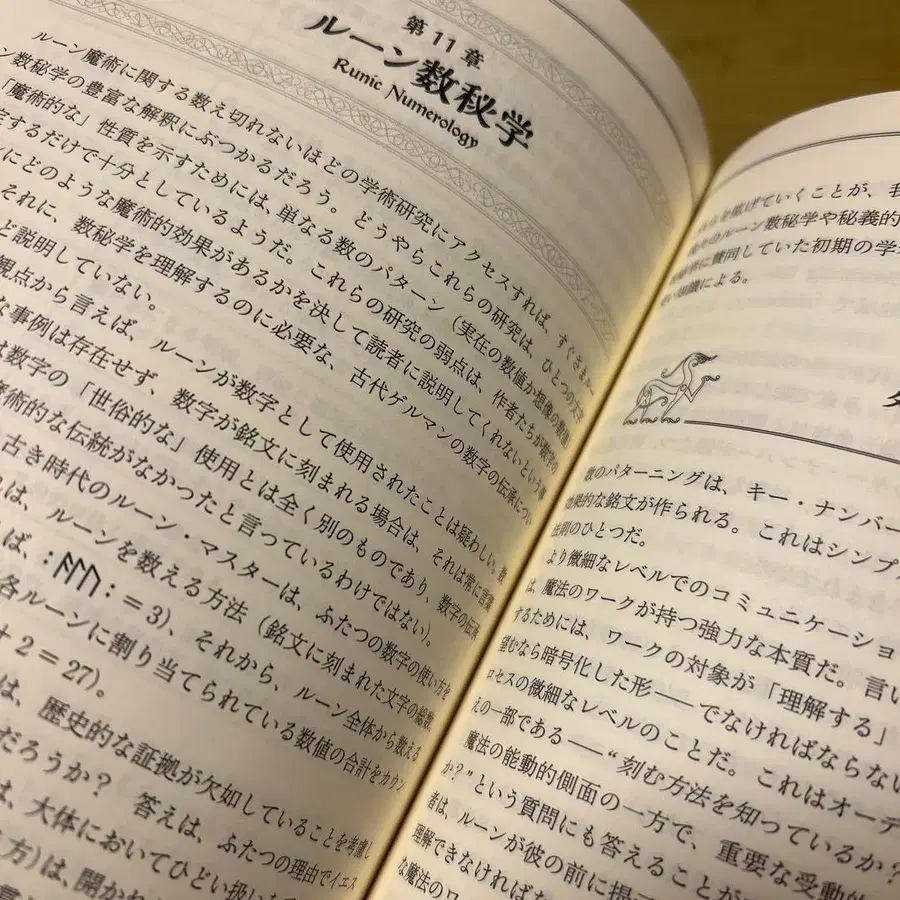 第11章
ルーン数秘学
Runic Numerology
ルーン魔術に関する数え切れないほどの学術研究にアクセスすれば、すぐさまルー
ン数秘学の豊富な解釈にぶつかるだろう。どうやらこれらの研究は、ひとつの文字
「魔術的な」性質を示すためには、単なる数のパターン（実在の数値か想像の数値）
定するだけで十分としているようだ。これらの研究の弱点は、作者たちが数字の
にどのような魔術的効果があるかを決して読者に説明してくれないという事
それに、数秘学を理解するのに必要な、古代ゲルマンの数字の伝承につい
ど説明していない。
観点から言えば、ルーンが数字として使用されたことは疑わしい。
な事例は存在せず、数字が銘文に刻まれる場合は、それは常に言葉
数字の「世俗的な」使用とは全く別のものであり、数字の伝承
魔術的な伝統がなかったと言っているわけではない）。
古き時代のルーン・マスターは、ふたつの数字の使い方を
は、ルーンを数える方法（銘文に刻まれた文字の総数、
ば、:ᚨᛚᚢ:＝3）、それから、ルーン全体から数える
各ルーンに割り当てられている数値の合計をカウン
＋2＝27）。
は、歴史的な証拠が欠如していることを考慮し
だろうか？ 答えは、ふたつの理由でイエス
は、大体においてひどい扱い
方）は、開かれ
を拡げていくことが、我
のルーン数秘学や秘義的
に賛同していた初期の学
による。
数のパターニングは、キー・ナンバー
効果的な銘文が作られる。これはシンプ
法則のひとつだ。
より微細なレベルでのコミュニケーショ
は、魔法のワークが持つ強力な本質だ。言い
するためには、ワークの対象が「理解する」
望むなら暗号化した形――でなければならない
ロセスの微細なレベルのことだ。これはオーデ
えの一部である――“刻む方法を知っているか？
魔法の能動的側面の一方で、重要な受動的
か？”という質問にも答えることが
者は、ルーンが彼の前に掲
理解できなければな
な魔法のワー